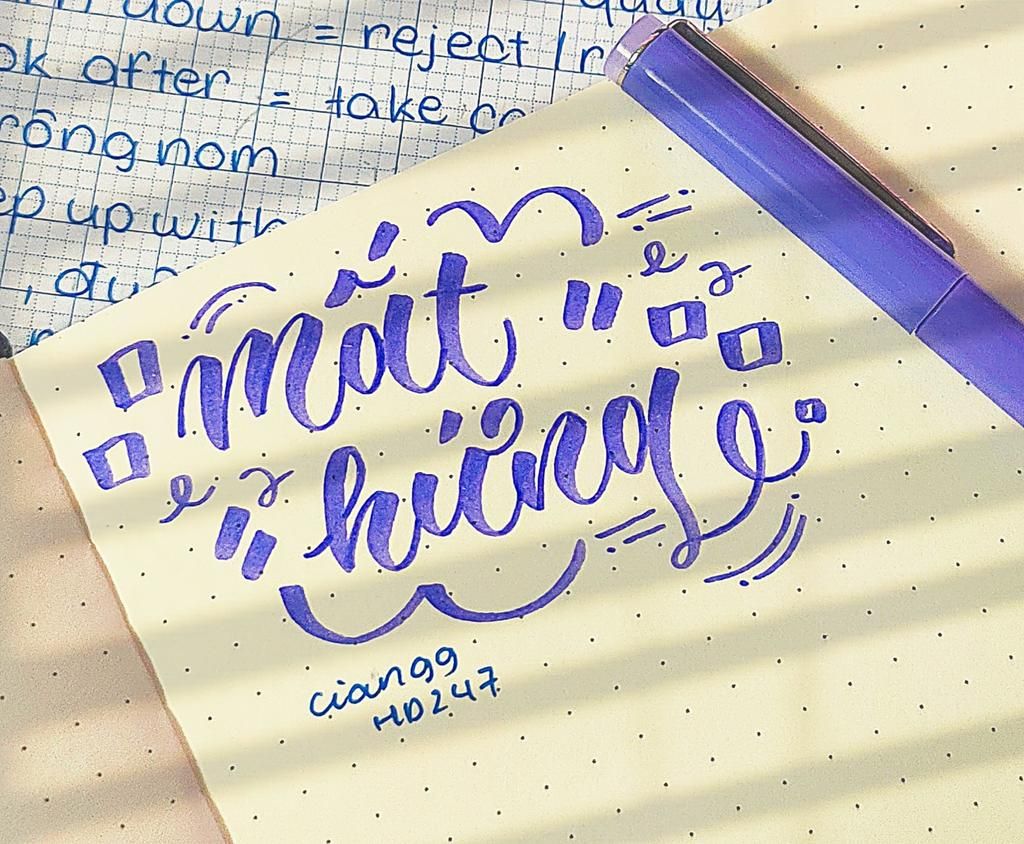 down = reject
after = take
trông nom
up with
mất
hứng
ciangg
HD247